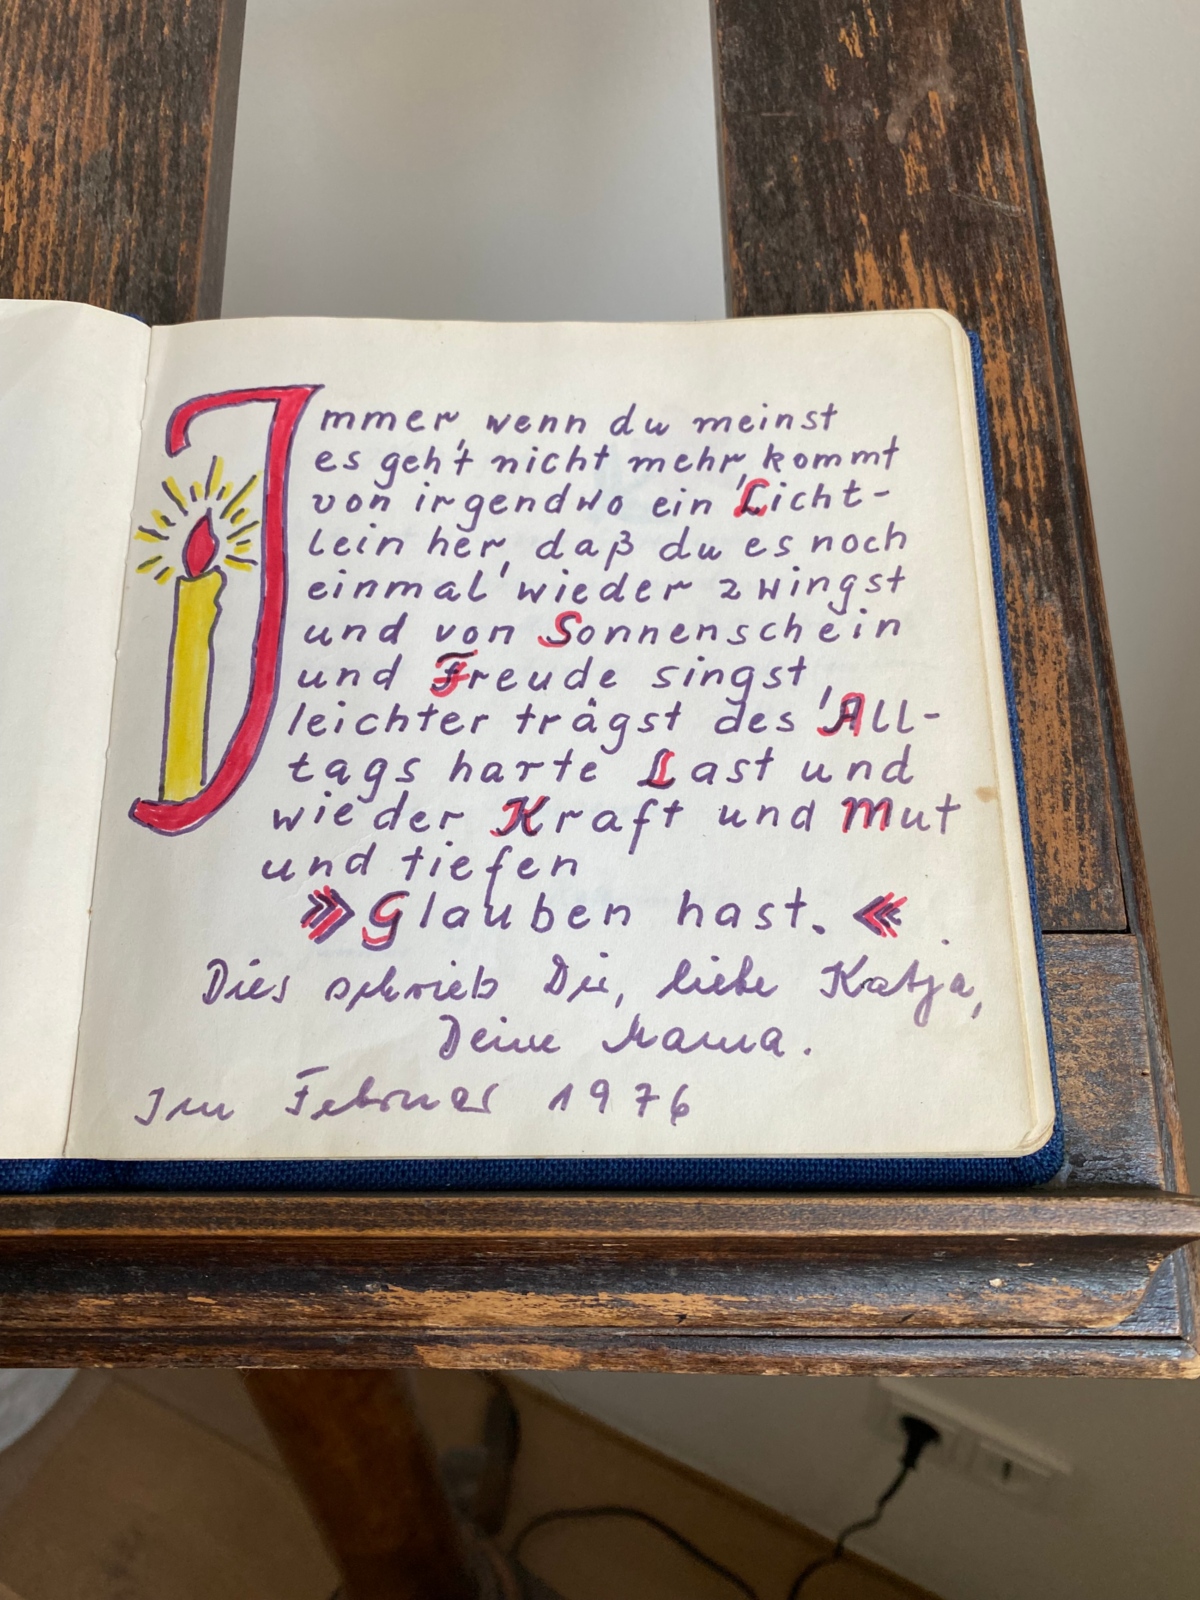 Immer wenn du meinst
es geh't nicht mehr, kommt
von irgendwo ein Licht-
lein her, daß du es noch
einmal wieder zwingst
und von Sonnenschein
und Freude singst,
leichter trägst des All-
tags harte Last und
wieder Kraft und Mut
und tiefen
»Glauben hast.«
Dies schrieb Dir, liebe Katja,
Deine Mama.
Im Februar 1976